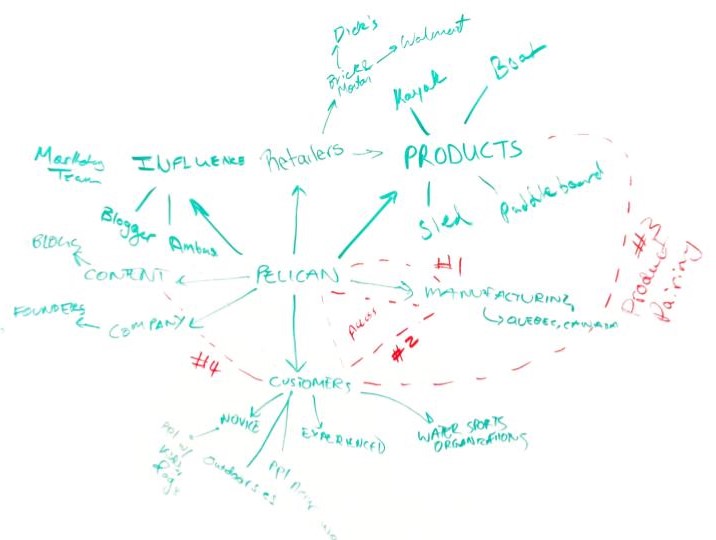 Dick's
Walmart
Brick &
Mortar
Boat
Kayak
Marketing
Team
INFLUENCE
Retailers
PRODUCTS
Sled
Paddleboard
Blogger
Ambas
#3
Product
Pairing
BLOGS
CONTENT
PELICAN
#1
MANUFACTURING
QUEBEC, CANADA
FOUNDERS
COMPANY
Access
#2
#4
CUSTOMERS
NOVICE
EXPERIENCED
WATER SPORTS
ORGANIZATIONS
Outdoorsies
ppl